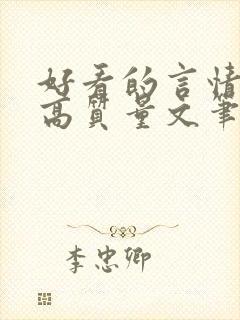 好看的言情
高质量文笔
李忠卿